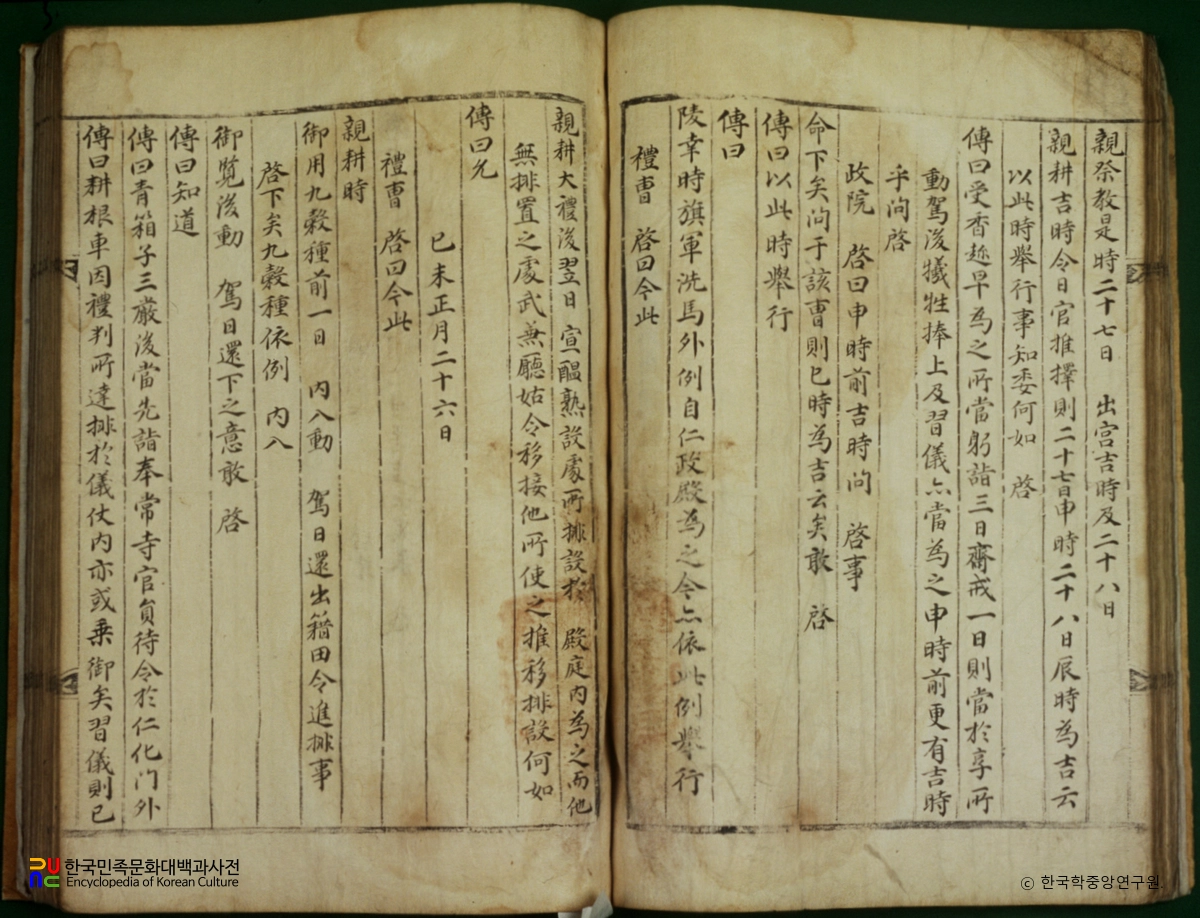 親祭教是時二十七日 出宮吉時及二十八日
親耕吉時令日官推擇則二十七日申時二十八日辰時為吉云
以此時舉行事知委何如 啓
傳曰受香趂早為之所當躬詣三日齋戒一日則當於享所
動駕後犧牲捧上及習儀亦當為之申時前更有吉時
乎問啓
政院 啓曰申時前吉時問 啓事
命下矣問于該曹則巳時為吉云矣敢 啓
傳曰以此時舉行
傳曰
陵幸時旗軍洗馬外例自仁政殿為之今亦依此例舉行
禮曹 啓曰今此
親耕大禮後翌日 宣醞熟設處所排設於 殿庭内為之而他
無排置之處武兼廳姑令移接他所使之推移排設何如
傳曰允
己未正月二十六日
禮曹 啓曰今此
親耕時
御用九穀種前一日 内入動 駕日還出籍田令進排事
啓下矣九穀種依例 内入
御覧後動 駕日還下之意敢 啓
傳曰知道
傳曰青箱子三嚴後當先詣奉常寺官負待令於仁化门外
傳曰耕根車因禮判所達排於儀仗内亦或乗御矣習儀則已
한국민족문화대백과사전
Encyclopedia of Korean Culture
© 한국학중앙연구원.